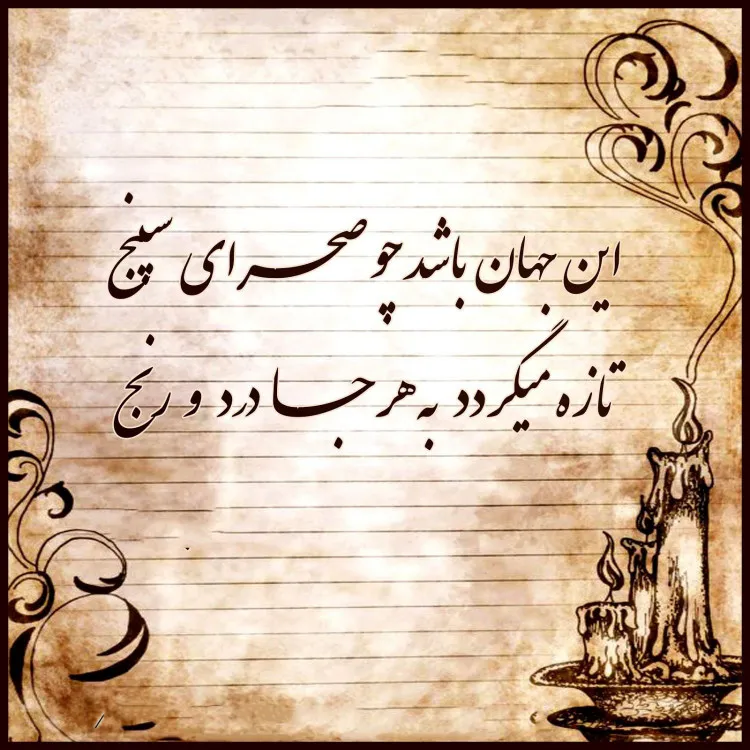 این جهان باشد چو صحرای سپنج
تازه میگردد به هر جا درد و رنج